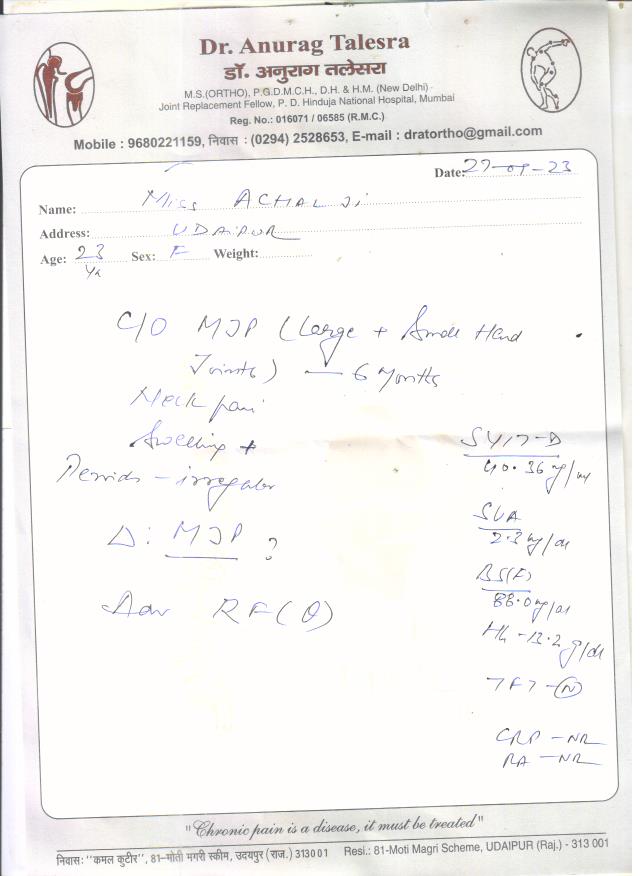 Dr. Anurag Talesra
डॉ. अनुराग तलेसरा
M.S.(ORTHO), P.G.D.M.C.H., D.H. & H.M. (New Delhi)
Joint Replacement Fellow, P. D. Hinduja National Hospital, Mumbai
Reg. No.: 016071 / 06585 (R.M.C.)
Mobile : 9680221159, निवास : (0294) 2528653, E-mail : dratortho@gmail.com
Date: 27-09-23
Name: Miss ACHAL Ji
Address: UDAIPUR
Age: 23 Yr Sex: F Weight:
C/O MJP (Large + Small Hand
Joints) — 6 Months
Neck pain
Swelling +
Periods - irregular
Δ: MJP ?
Adv RF(θ)
SVIT-D
40.36 ng/ml
SUA
2.3 mg/dl
BS(F)
88.0 mg/dl
Hb - 13.2 g/dl
TFT - (N)
CRP - NR
RA - NR
"Chronic pain is a disease, it must be treated"
निवास: "कमल कुटीर", 81-मोती मगरी स्कीम, उदयपुर (राज.) 313001 Resi.: 81-Moti Magri Scheme, UDAIPUR (Raj.) - 313 001